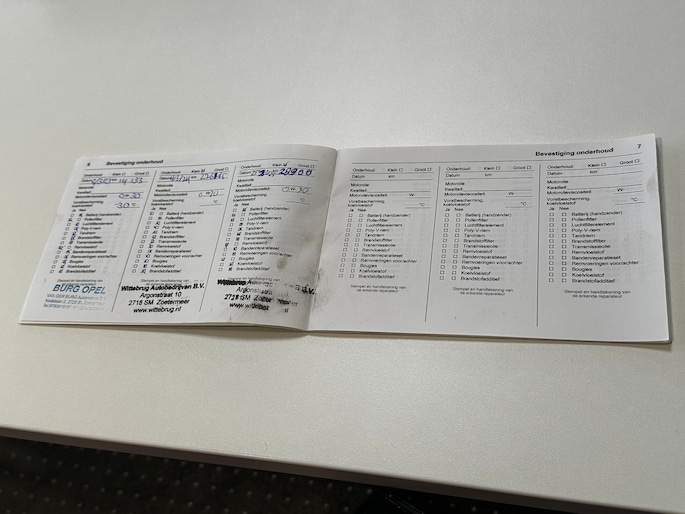 6 Bevestiging onderhoud
Onderhoud: Klein Groot
Datum 14 133
Motorolie
Kwaliteit
Motorolieviscositeit: 0W-30
Vorstbescherming,
koelvloeistof -30 °C
Ja Nee
Batterij (handzender)
Pollenfilter
Luchtfilterelement
Poly-V-riem
Tandriem
Brandstoffilter
Transmissieolie
Remvloeistof
Bandenreparatieset
Remvoeringen voor/achter
Bougies
Koelvloeistof
Brandstofadditief
BURG OPEL
Onderhoud: Klein Groot
Datum km
Motorolie
Kwaliteit
Motorolieviscositeit:
Vorstbescherming,
koelvloeistof °C
Ja Nee
Batterij (handzender)
Pollenfilter
Luchtfilterelement
Poly-V-riem
Tandriem
Brandstoffilter
Transmissieolie
Remvloeistof
Bandenreparatieset
Remvoeringen voor/achter
Bougies
Koelvloeistof
Brandstofadditief
Wittebrug Autobedrijven B.V.
Argonstraat 10
2718 SM Zoetermeer
www.wittebrug.nl
Onderhoud: Klein Groot
Datum
Motorolie
Kwaliteit
Motorolieviscositeit: 0W-30
Vorstbescherming,
koelvloeistof °C
Ja Nee
Batterij (handzender)
Pollenfilter
Luchtfilterelement
Poly-V-riem
Tandriem
Brandstoffilter
Transmissieolie
Remvloeistof
Bandenreparatieset
Remvoeringen voor/achter
Bougies
Koelvloeistof
Brandstofadditief
Wittebrug Autobedrijven B.V.
2718 SM Zoetermeer
Bevestiging onderhoud 7
Onderhoud: Klein Groot
Datum km
Motorolie
Kwaliteit
Motorolieviscositeit: W-
Vorstbescherming,
koelvloeistof °C
Ja Nee
Batterij (handzender)
Pollenfilter
Luchtfilterelement
Poly-V-riem
Tandriem
Brandstoffilter
Transmissieolie
Remvloeistof
Bandenreparatieset
Remvoeringen voor/achter
Bougies
Koelvloeistof
Brandstofadditief
Stempel en handtekening van
de erkende reparateur
Onderhoud: Klein Groot
Datum km
Motorolie
Kwaliteit
Motorolieviscositeit: W-
Vorstbescherming,
koelvloeistof °C
Ja Nee
Batterij (handzender)
Pollenfilter
Luchtfilterelement
Poly-V-riem
Tandriem
Brandstoffilter
Transmissieolie
Remvloeistof
Bandenreparatieset
Remvoeringen voor/achter
Bougies
Koelvloeistof
Brandstofadditief
Stempel en handtekening van
de erkende reparateur
Onderhoud: Klein Groot
Datum km
Motorolie
Kwaliteit
Motorolieviscositeit: W-
Vorstbescherming,
koelvloeistof °C
Ja Nee
Batterij (handzender)
Pollenfilter
Luchtfilterelement
Poly-V-riem
Tandriem
Brandstoffilter
Transmissieolie
Remvloeistof
Bandenreparatieset
Remvoeringen voor/achter
Bougies
Koelvloeistof
Brandstofadditief
Stempel en handtekening van
de erkende reparateur